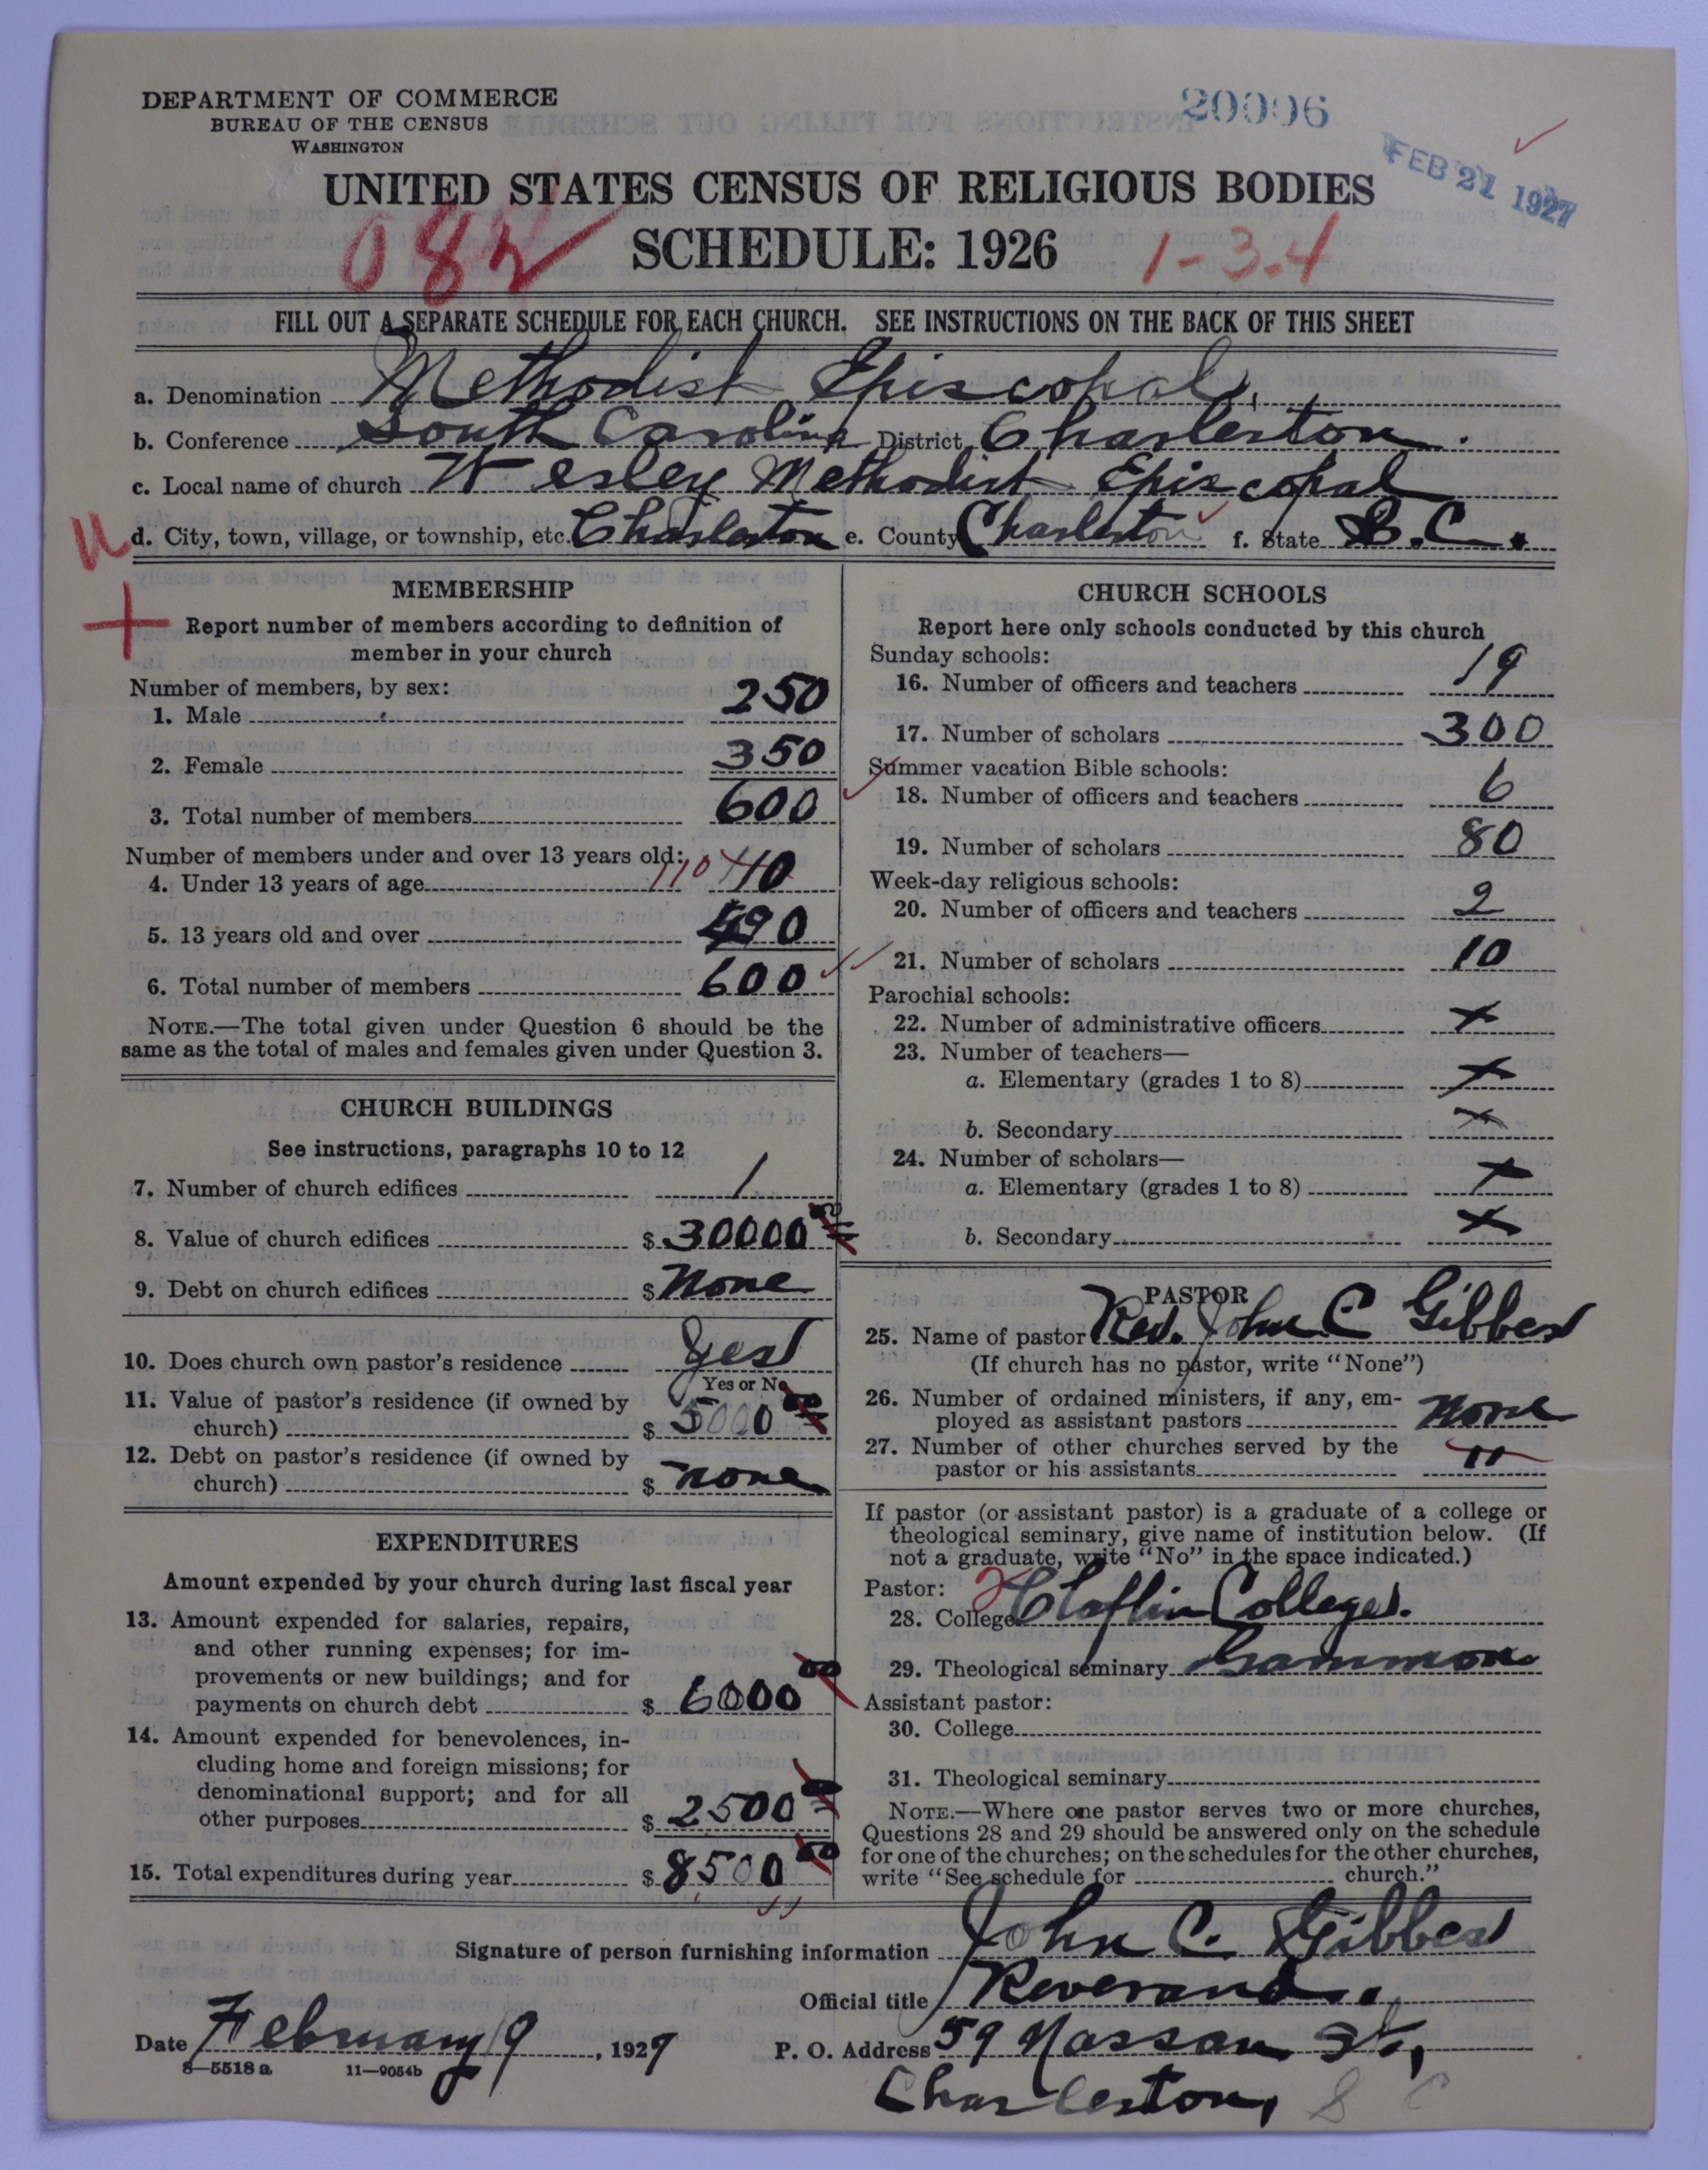 DEPARTMENT OF COMMERCE
BUREAU OF THE CENSUS
WASHINGTON
20996
FEB 21 1927
UNITED STATES CENSUS OF RELIGIOUS BODIES
SCHEDULE: 1926
082
1-3-4
FILL OUT A SEPARATE SCHEDULE FOR EACH CHURCH. SEE INSTRUCTIONS ON THE BACK OF THIS SHEET
a. Denomination Methodist Episcopal.
b. Conference South Carolina District Charleston.
c. Local name of church Wesley Methodist Episcopal
d. City, town, village, or township, etc. Charleston e. County Charleston f. State S.C.
MEMBERSHIP
Report number of members according to definition of
member in your church
Number of members, by sex:
1. Male 250
2. Female 350
3. Total number of members 600
Number of members under and over 13 years old:
4. Under 13 years of age 110 110
5. 13 years old and over 490
6. Total number of members 600
NOTE.—The total given under Question 6 should be the
same as the total of males and females given under Question 3.
CHURCH BUILDINGS
See instructions, paragraphs 10 to 12
7. Number of church edifices 1
8. Value of church edifices $ 30000
9. Debt on church edifices $ None
10. Does church own pastor's residence Yes
Yes or No
11. Value of pastor's residence (if owned by
church) $ 5000 00
12. Debt on pastor's residence (if owned by
church) $ None
EXPENDITURES
Amount expended by your church during last fiscal year
13. Amount expended for salaries, repairs,
and other running expenses; for im-
provements or new buildings; and for
payments on church debt $ 6000 00
14. Amount expended for benevolences, in-
cluding home and foreign missions; for
denominational support; and for all
other purposes $ 2500 00
15. Total expenditures during year $ 8500 00
CHURCH SCHOOLS
Report here only schools conducted by this church
Sunday schools:
16. Number of officers and teachers 19
17. Number of scholars 300
Summer vacation Bible schools:
18. Number of officers and teachers 6
19. Number of scholars 80
Week-day religious schools:
20. Number of officers and teachers 2
21. Number of scholars 10
Parochial schools:
22. Number of administrative officers x
23. Number of teachers—
a. Elementary (grades 1 to 8) x
b. Secondary x
24. Number of scholars—
a. Elementary (grades 1 to 8) x
b. Secondary x
PASTOR
25. Name of pastor Rev. John C Gibbes
(If church has no pastor, write "None")
26. Number of ordained ministers, if any, em-
ployed as assistant pastors None
27. Number of other churches served by the
pastor or his assistants "
If pastor (or assistant pastor) is a graduate of a college or
theological seminary, give name of institution below. (If
not a graduate, write "No" in the space indicated.)
Pastor: 2
28. College Claflin College.
29. Theological seminary Gammon
Assistant pastor:
30. College
31. Theological seminary
NOTE.—Where one pastor serves two or more churches,
Questions 28 and 29 should be answered only on the schedule
for one of the churches; on the schedules for the other churches,
write "See schedule for church."
Signature of person furnishing information John C. Gibbes
Official title Reverand
Date February 9, 1927
P. O. Address 59 Nassau St,
Charleston, S C
8—5518 a 11—9054b